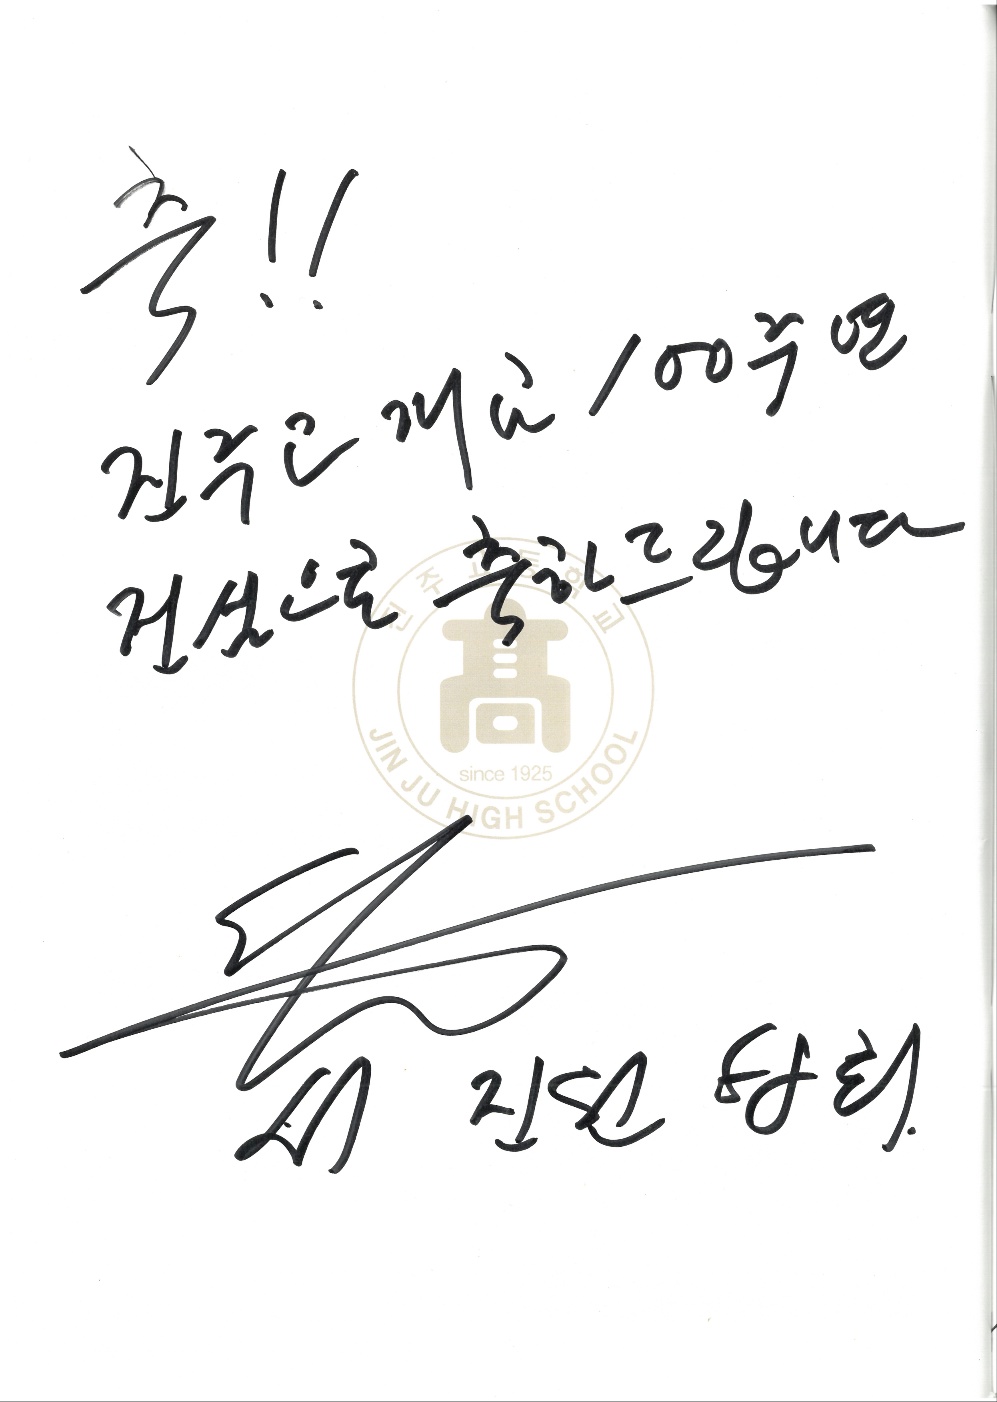 축!!
진주고 개교 100주년
진심으로 축하드립니다
진주고등학교
since 1925
JIN JU HIGH SCHOOL